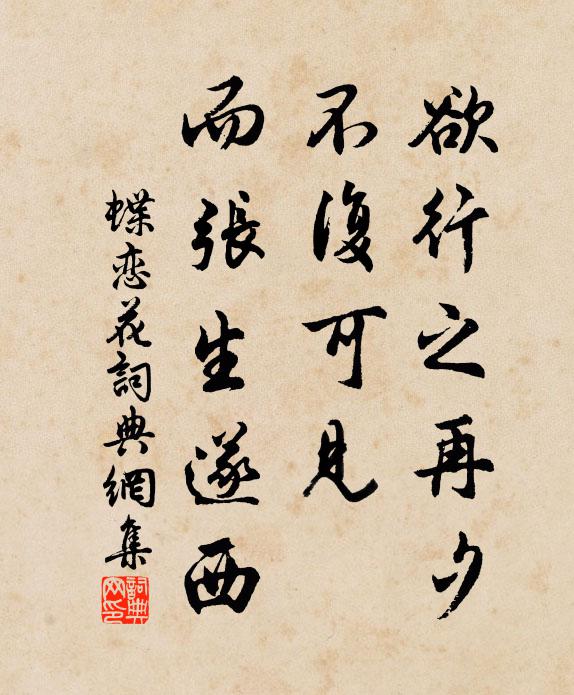 欲行之再夕
不復可見
而張生遂西
蝶恋花詞典網集
詞典網印